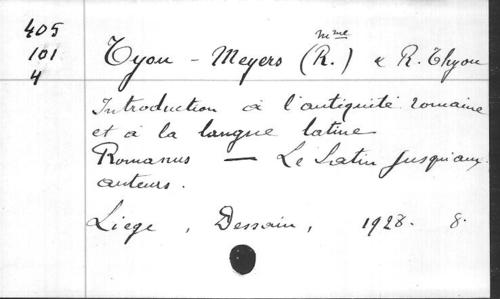 405
101
4
Tyou - Meyers (R.) mme & R. Thyou
Introduction à l'antiquité romaine
et à la langue latine
Romanus — Le Latin jusqu'aux
auteurs.
Liege, Dessain, 1928. 8.